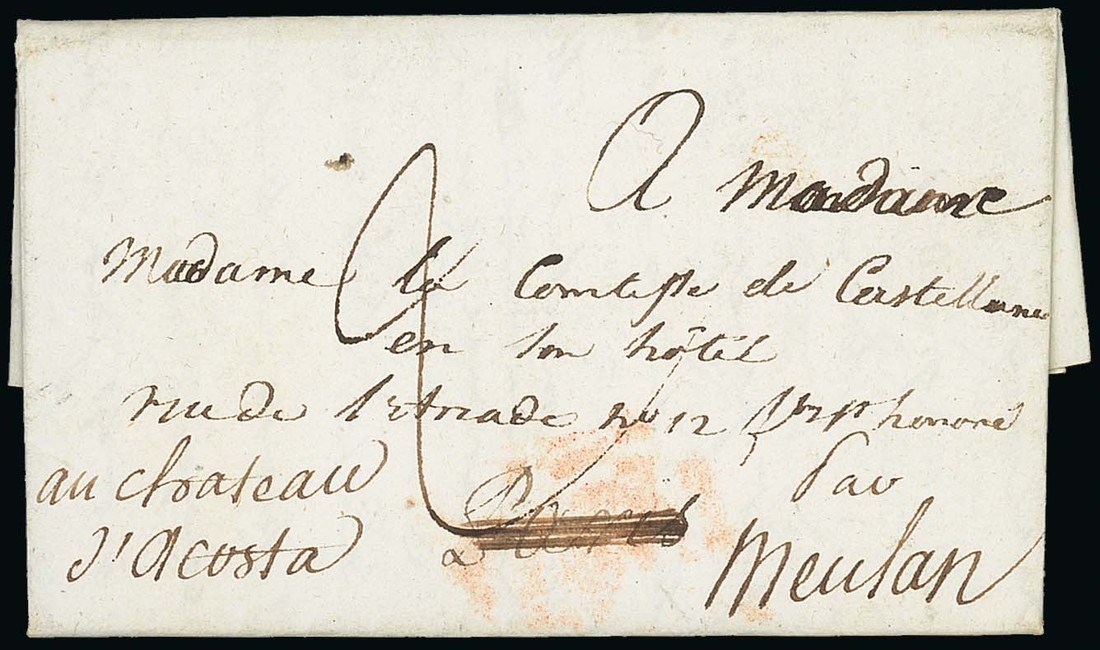 A Madame
Madame la Comtesse de Castellane
en son hôtel
rue de l'Estrade n° 12 fbg St honoré
au chateau par
d'Acosta Paris Meulan